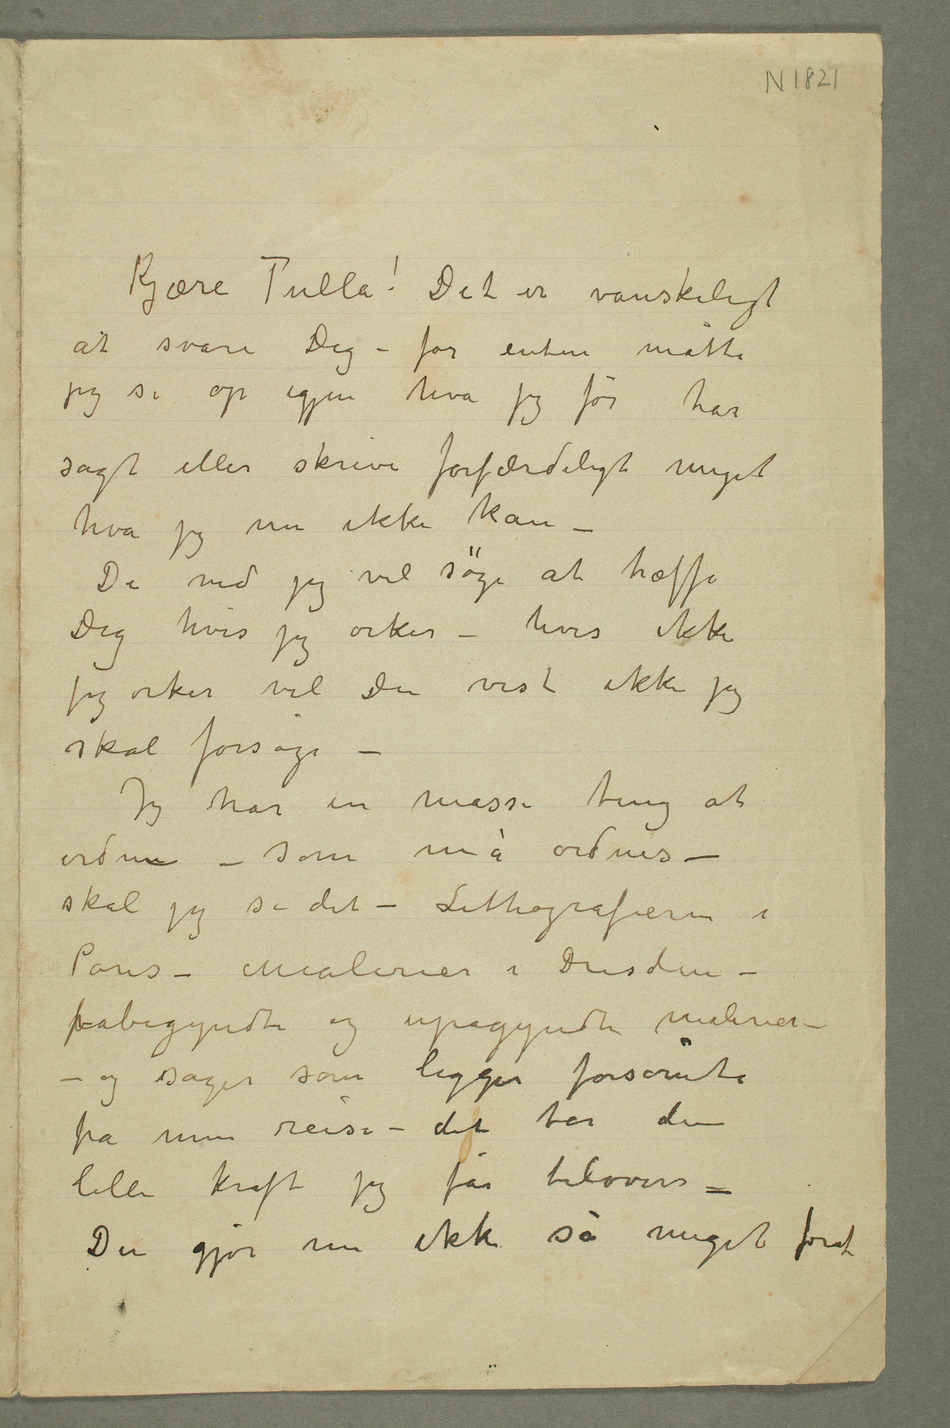 N 1821
Kjære Tulla! Det er vanskeligt
at svare Dig – for enten måtte
jeg si op igjen hva jeg før har
sagt eller skrive forfærdeligt meget
hva jeg nu ikke kan –
Du ved jeg vil söge at træffe
Dig hvis jeg orker – hvis ikke
jeg orker vil Du vist ikke jeg
skal forsøge –
Jeg har en masse ting at
ordne – som må ordnes –
skal jeg si det – Lithografierne i
Paris – Malerier i Dresden –
påbegyndte og upagyndte malerier –
– og sager som ligger forsømte
fra min reise – det tar den
lille kraft jeg får tilovers –
Du gjør nu ikke så meget forat